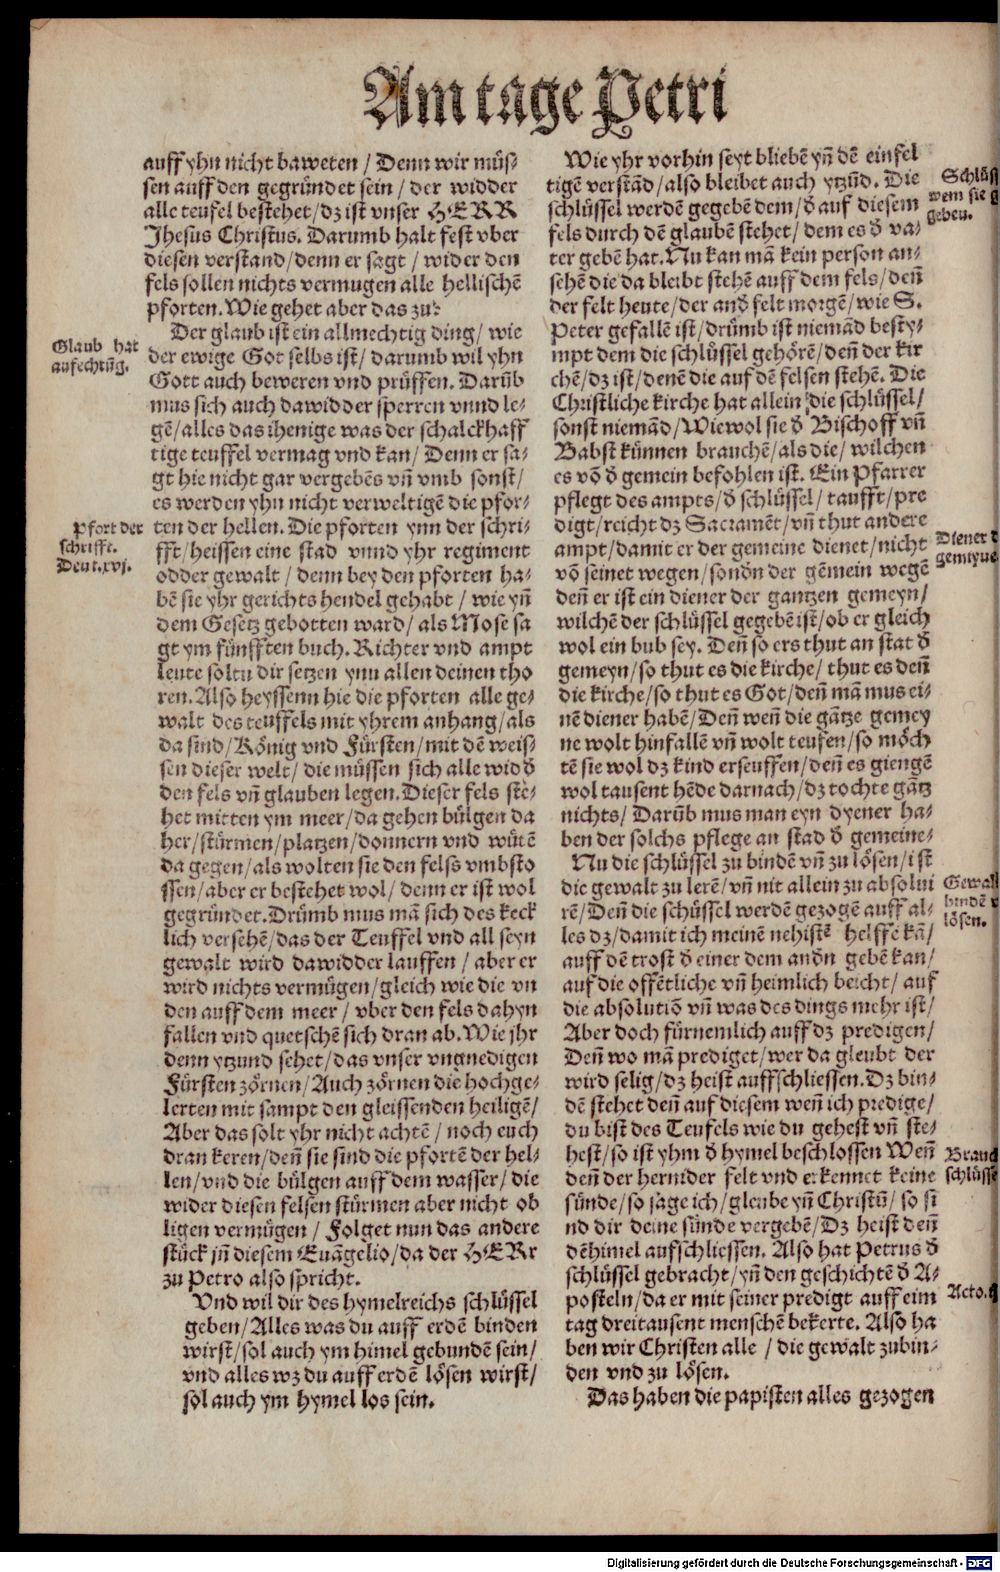 Am tage Petri
auff yhn nicht baweten / Denn wir müs-
sen auff den gegründet sein / der widder
alle teufel bestehet / dz ist vnser HERR
Jhesus Christus. Darumb halt fest vber
diesen verstand / denn er sagt / wider den
fels sollen nichts vermugen alle hellischē
pforten. Wie gehet aber das zu?
Der glaub ist ein allmechtig ding / wie
der ewige Got selbs ist / darumb wil yhn
Gott auch beweren vnd prüffen. Darūb
mus sich auch dawidder sperren vnnd le-
gē / alles das ihenige was der schalckhaff
tige teuffel vermag vnd kan / Denn er sa-
gt hie nicht gar vergebēs vn̄ vmb sonst /
es werden yhn nicht verweltigē die pfor-
ten der hellen. Die pforten ynn der schri-
fft / heissen eine stad vnnd yhr regiment
odder gewalt / denn bey den pforten ha-
bē sie yhr gerichts hendel gehabt / wie yn̄
dem Gesetz gebotten ward / als Mose sa
gt ym fünfften buch. Richter vnd ampt
leute soltu dir setzen ynn allen deinen tho
ren. Also heyssenn hie die pforten alle ge-
walt des teuffels mit yhrem anhang / als
da sind / König vnd Fürsten / mit dē weis-
sen dieser welt / die müssen sich alle wid d̄
den fels vn̄ glauben legen. Dieser fels ste-
het mitten ym meer / da gehen bülgen da
her / stürmen / platzen / donnern vnd wütē
da gegen / als wolten sie den felss vmbsto
ssen / aber er bestehet wol / denn er ist wol
gegründet. Drümb mus mā sich des keck
lich versehē / das der Teuffel vnd all seyn
gewalt wird dawidder lauffen / aber er
wird nichts vermügen / gleich wie die vn
den auff dem meer / vber den fels dahyn
fallen vnd quetschē sich dran ab. Wie jhr
denn ytzund sehet / das vnser vngnedigen
Fürsten zörnen / Auch zörnen die hochge-
lerten mit sampt den gleissenden heiligē /
Aber das solt yhr nicht achtē / noch euch
dran keren / den̄ sie sind die pfortē der hel-
len / vnd die bülgen auff dem wasser / die
wider diesen felsen stürmen aber nicht ob
ligen vermügen / Folget nun das andere
stück jn̄ diesem Euāgelio / da der HERr
zu Petro also spricht.
Vnd wil dir des hymelreichs schlüssel
geben / Alles was du auff erdē binden
wirst / sol auch ym himel gebundē sein /
vnd alles wz du auff erdē lösen wirst /
sol auch ym hymel los sein.
Glaub hat
anfechtūg.
Pfort der
schrifft.
Deut. xvj.
Wie yhr vorhin seyt bliebē yn̄ dē einfel
tigē verstād / also bleibet auch ytzūd. Die
schlüssel werdē gegebē dem / d̄ auf diesem
fels durch dē glaubē stehet / dem es d̄ va-
ter gebē hat. Nu kan mā kein person an-
sehē die da bleibt stehē auff dem fels / den̄
der felt heute / der and̄ felt morgē / wie S.
Peter gefallē ist / drūmb ist niemād besty-
mpt dem die schlüssel gehörē / den̄ der kir
chē / dz ist / denē die auf dē felsen stehē. Die
Christliche kirche hat allein die schlüssel /
sonst niemād / Wiewol sie d̄ Bischoff vn̄
Babst künnen brauchē / als die / wilchen
es vō d̄ gemein befohlen ist. Ein Pfarrer
pflegt des ampts / d̄ schlüssel / taufft / pre
digt / reicht dz Sacramēt / vn̄ thut andere
ampt / damit er der gemeine dienet / nicht
vō seinet wegen / sond̄n der gēmein wegē
den̄ er ist ein diener der gantzen gemeyn /
wilchē der schlüssel gegebē ist / ob er gleich
wol ein bub sey. Den̄ so ers thut an stat d̄
gemeyn / so thut es die kirche / thut es den̄
die kirche / so thut es Got / den̄ mā mus ei-
nē diener habē / Den̄ wen̄ die gātze gemey
ne wolt hinfallē vn̄ wolt teufen / so möch
tē sie wol dz kind erseuffen / den̄ es giengē
wol tausent hēde darnach / dz tochte gātz
nichts / Darūb mus man eyn dyener ha-
ben der solchs pflege an stad d̄ gemeine-
Nu die schlüssel zu bindē vn̄ zu lösen / ist
die gewalt zu lerē / vn̄ nit allein zu absolui
rē / Den̄ die schüssel werdē gezogē auff al-
les dz / damit ich meinē nehistē helffē kā /
auff dē trost d̄ einer dem and̄n gebē kan /
auf die offētliche vn̄ heimlich beicht / auf
die absolutiō vn̄ was des dings mehr ist /
Aber doch fürnemlich auff dz predigen /
Den̄ wo mā prediget / wer da gleubt der
wird selig / dz heist auffschliessen. Dz bin-
dē stehet den̄ auf diesem wen̄ ich predige /
du bist des Teufels wie du gehest vn̄ ste-
hest / so ist yhm d̄ hymel beschlossen Wen̄
den̄ der hernider felt vnd erkennet keine
sünde / so sage ich / gleube yn̄ Christū / so si
nd dir deine sünde vergebē / Dz heist den̄
dē himel aufschliessen. Also hat Petrus d̄
schlüssel gebracht / yn̄ den geschichtē d̄ A-
posteln / da er mit seiner predigt auff eim
tag dreitausent menschē bekerte. Also ha
ben wir Christen alle / die gewalt zubin-
den vnd zu lösen.
Das haben die papisten alles gezogen
Schlüss
wem sie g
geben.
Diener d
gemeyne
Gewalt
bindē v
lösen.
Brauch
schlüsse
Acto.
Digitalisierung gefördert durch die Deutsche Forschungsgemeinschaft - DFG